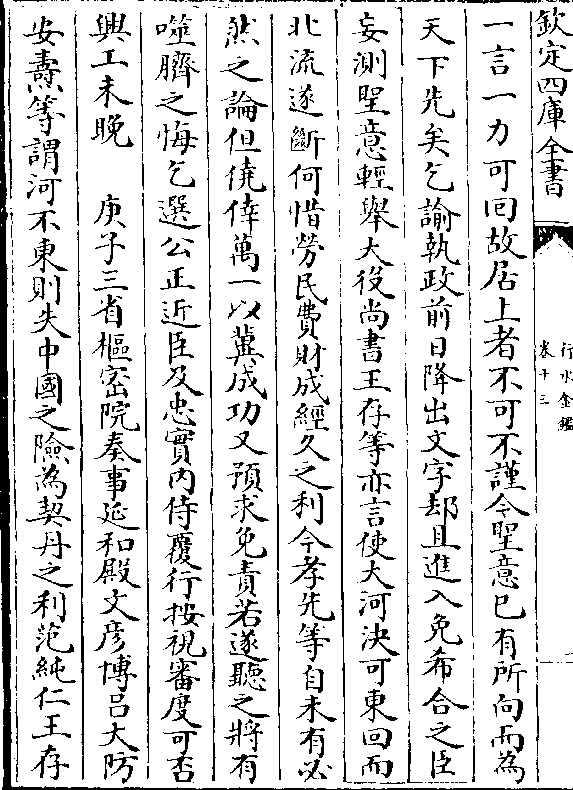 欽定四庫全書
行水金鑑
卷十三
一言一力可回故居上者不可不謹今聖意已有所向而為
天下先矣乞諭執政前日降出文字却且進入免希合之臣
妄測聖意輕舉大役尚書王存等亦言使大河決可東回而
北流遂斷何惜勞民費財成經久之利今孝先等自未有必
然之論但僥倖萬一以冀成功又預求免責若遂聽之將有
噬臍之悔乞選公正近臣及忠實内侍覆行按視審度可否
興工未晚　庚子三省樞密院奏事延和殿文彦博吕大防
安燾等謂河不東則失中國之險為契丹之利范純仁王存